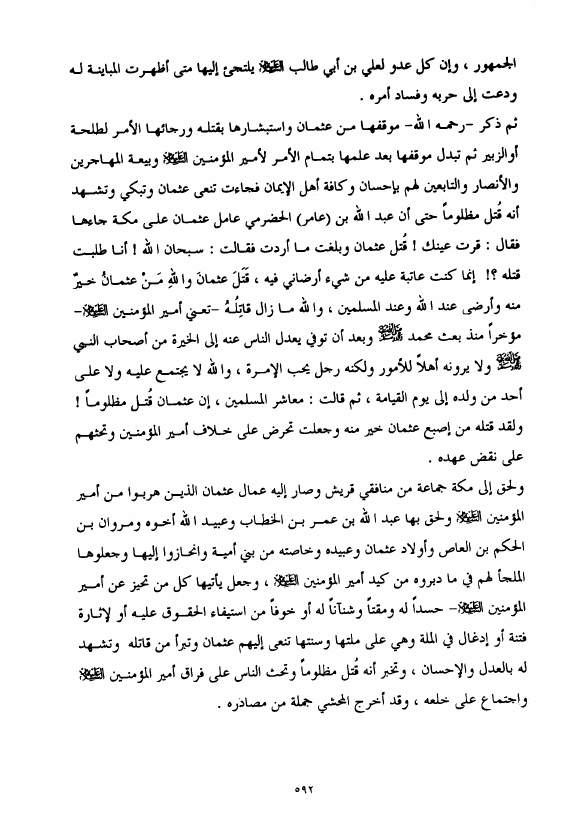 الجمهور ، وإن كل عدو لعلي بن أبي طالب يلتجئ إليها متى أظهرت المباينة له
ودعت إلى حربه وفساد أمره .
ثم ذكر –رحمه الله– موقفها من عثمان واستبشارها بقتله ورجائها الأمر لطلحة
أوالزبير ثم تبدل موقفها بعد علمها بتمام الأمر لأمير المؤمنين وبيعة المهاجرين
والأنصار والتابعين لهم بإحسان وكافة أهل الإيمان فجاءت تنعى عثمان وتبكي وتشهد
أنه قُتل مظلوماً حتى أن عبد الله بن (عامر) الحضرمي عامل عثمان على مكة جاءها
فقال : قرت عينك ! قُتل عثمان وبلغت ما أردت فقالت : سبحان الله ! أنا طلبت
قتله ؟! إنما كنت عاتبة عليه من شيء أرضاني فيه ، قَتَلَ عثمانَ واللهِ مَنْ عثمانُ خيرٌ
منه وأرضى عند الله وعند المسلمين ، والله ما زال قاتِلُهُ –تعني أمير المؤمنين –
مؤخراً منذ بعث محمد وبعد أن توفي يعدل الناس عنه إلى الخيرة من أصحاب النبي
ولا يرونه أهلاً للأمور ولكنه رجل يحب الإمرة ، والله لا يجتمع عليه ولا على
أحد من ولده إلى يوم القيامة ، ثم قالت : معاشر المسلمين ، إن عثمان قُتل مظلوماً !
ولقد قتله من إصبع عثمان خير منه وجعلت تحرض على خلاف أمير المؤمنين وتحثهم
على نقض عهده .
ولحق إلى مكة جماعة من منافقي قريش وصار إليه عمال عثمان الذين هربوا من أمير
المؤمنين ولحق بها عبد الله بن عمر بن الخطاب وعبيد الله أخوه ومروان بن
الحكم بن العاص وأولاد عثمان وعبيده وخاصته من بني أمية وانحازوا إليها وجعلوها
الملجأ لهم في ما دبروه من كيد أمير المؤمنين ، وجعل يأتيها كل من تحيز عن أمير
المؤمنين – حسداً له ومقتاً وشنآناً له أو خوفاً من استيفاء الحقوق عليه أو لإثارة
فتنة أو إدغال في الملة وهي على ملتها وسنتها تنعى إليهم عثمان وتبرأ من قاتله وتشهد
له بالعدل والإحسان ، وتخبر أنه قُتل مظلوماً وتحث الناس على فراق أمير المؤمنين
واجتماع على خلعه ، وقد أخرج المحشي جملة من مصادره .
٥٩٢